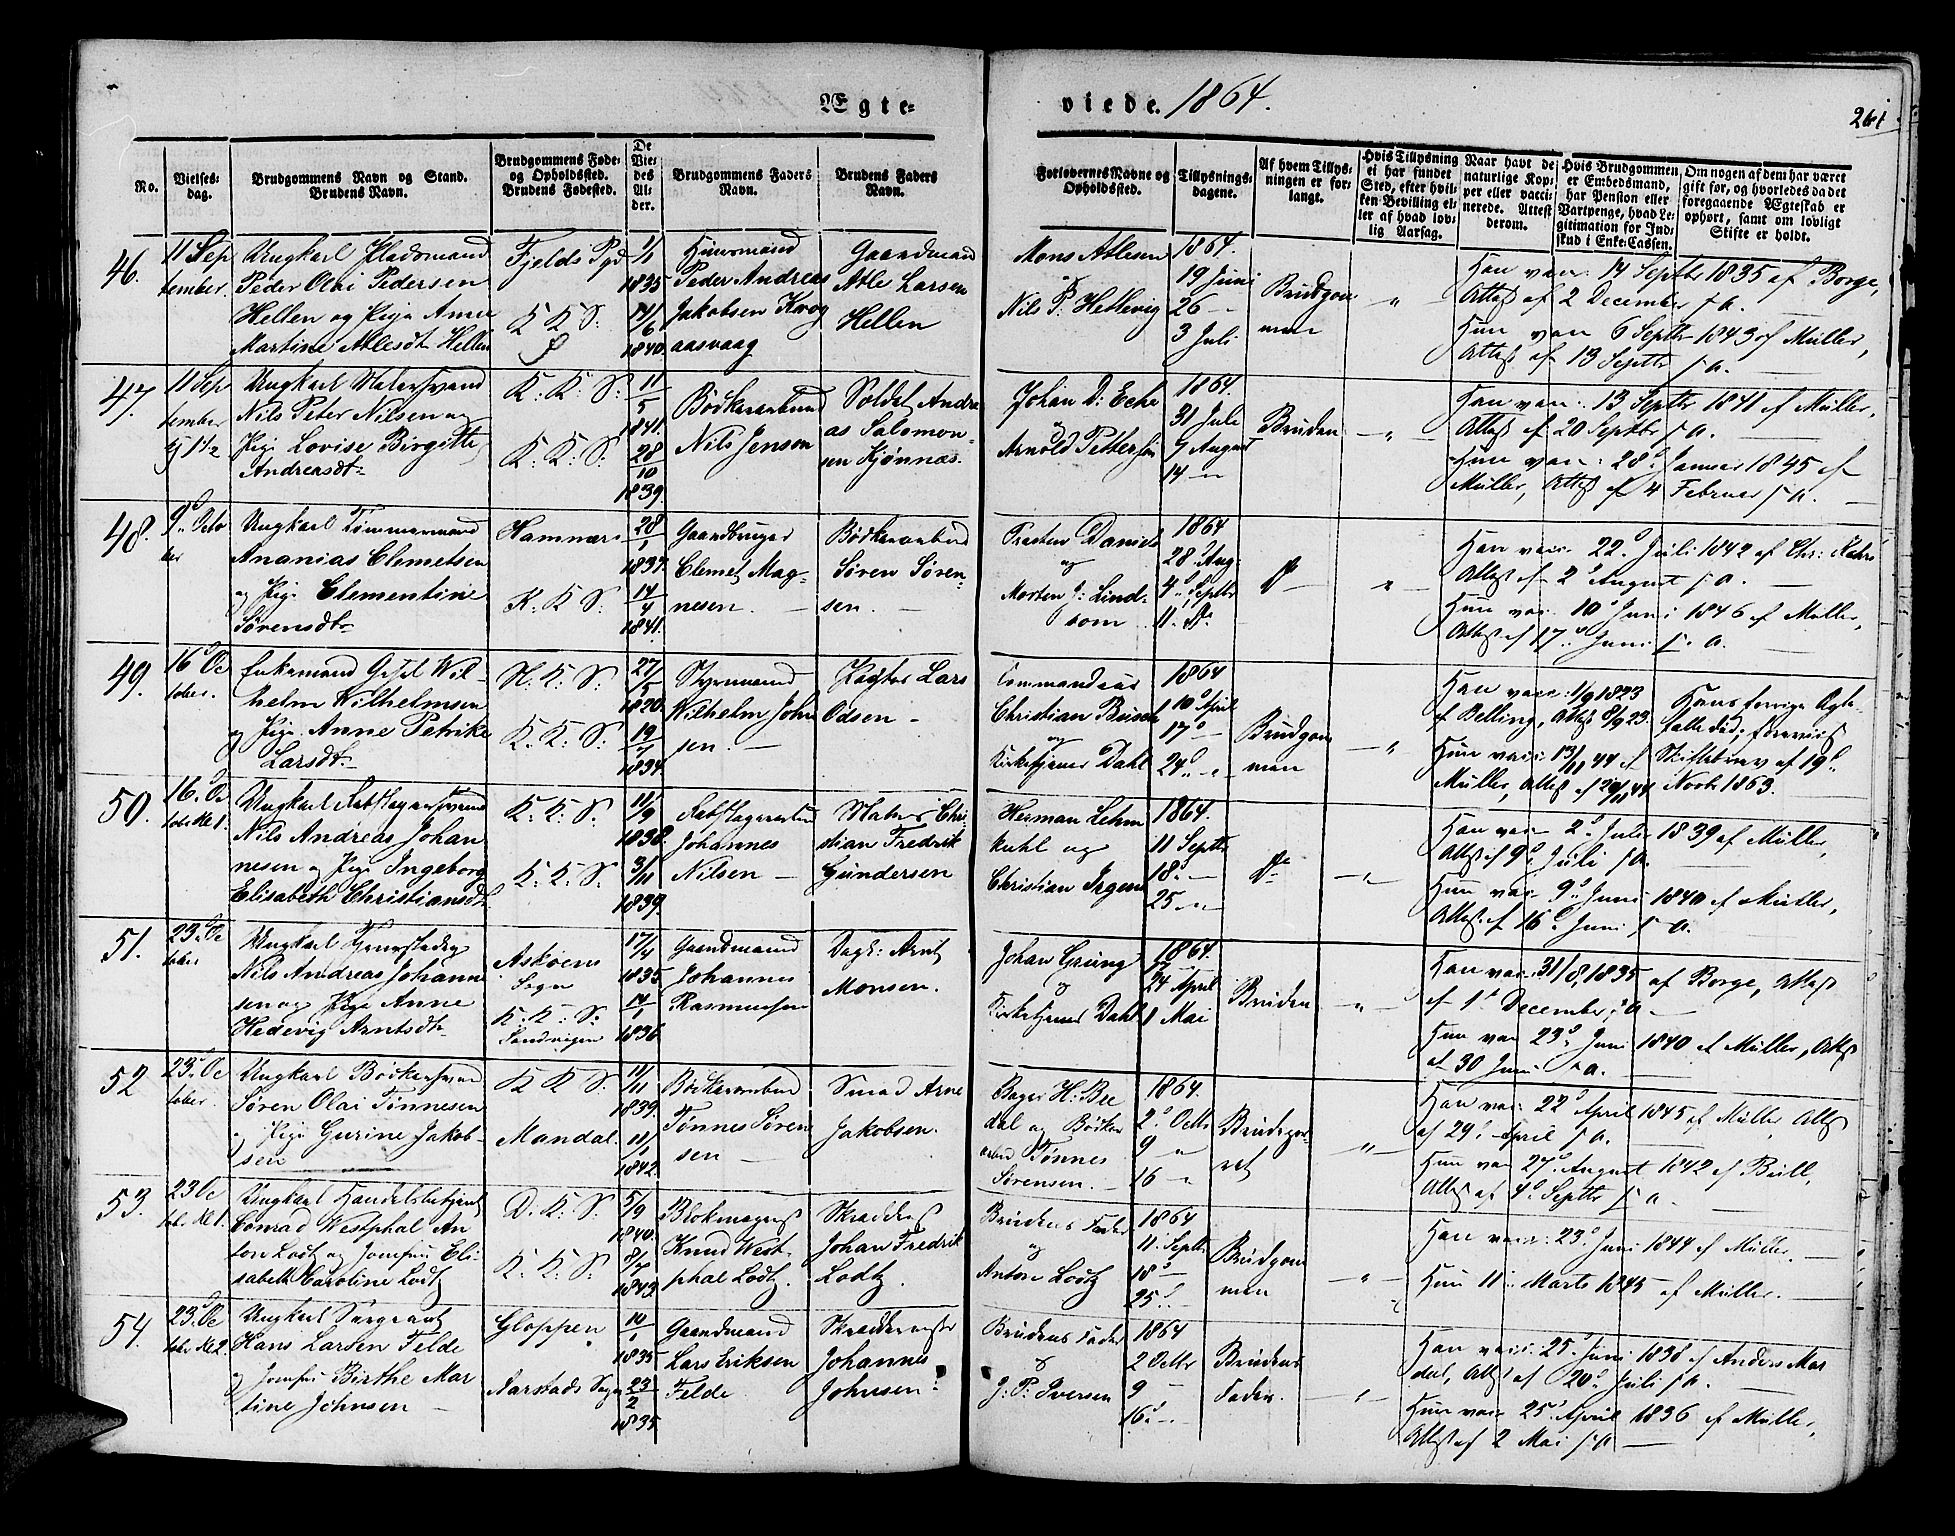 Ægte-
viede. 1864.
261
No.
Vielses-
dag.
Brudgommens Navn og Stand.
Brudens Navn.
Brudgommens Føde-
og Opholdssted.
Brudens Fødested.
De
Vie-
des
Al-
der.
Brudgommens Faders
Navn.
Brudens Faders
Navn.
Forlovernes Navne og
Opholdssted.
Tillysnings-
dagene.
Af hvem Tillys-
ningen er for-
langt.
Hvis Tillysning
ei har fundet
Sted, efter hvil-
ken Bevilling el-
ler af hvad lov-
lig Aarsag.
Naar havt de
naturlige Kop-
per eller vacci-
nerede. Attest
derom.
Hvis Brudgommen
er Embedsmand,
har Pension eller
Vartpenge, hvad Le-
gitimation for Ind-
skud i Enke-Cassen.
Om nogen af dem har været
gift før, og hvorledes da det
foregaaende Ægteskab er
ophørt, samt om lovligt
Skifte er holdt.
46.
11 Sep
tember.
Ungkarl Pladsmand
Peder Olai Pedersen
Hellen og Pige Anne
Martine Atlesdt. Hellen
Fjelds Pgd
K K S:
1/1
1835
14/6
1840.
Huusmand
Peder Andreas
Jakobsen Krog
aasvaag
Gaardmand
Atle Larsen
Hellen
Mons Atlesen
og
Nils P. Hetlevig
1864.
19 Juni
26 "
3 Juli
Brudgom
men
"
Han vacc. 14 Septbr 1835 af Borge,
Attest af 2 December s. a.
Hun vacc 6 Septbr 1843 af Müller,
Attest af 13 Septbr s. a.
47.
11 Sep
tember
Kl 1 1/2
Ungkarl Malersvend
Nils Peter Nilsen og
Pige Lovise Birgitte
Andreasdt.
K: K: S:
K: K: S:
11/5
1841.
28/10
1839.
Bødkersvend
Nils Jensen
Soldat Andre
as Salomon-
sen Kjønnæs.
Johan D: Eche
og
Arnold Pettersen
1864.
31 Juli
7 August
14 "
Bruden
"
Han vacc: 13 Septbr 1841 af Müller,
Attest af 20 Septbr s. a.
Hun vacc: 28 Januar 1845 af
Müller, Attest af 4 Februar s. a.
48.
9. Octo
ber
Ungkarl Tømmermand
Ananias Clemetsen
og Pige Clementine
Sørensdt.
Hamnær:
K. K S:
28/1
1837.
14/4
1841.
Gaardbruger
Clemet Mag-
nesen.
Bødkersvend
Søren Søren-
sen.
Presten Daniels
og
Morten J: Lind-
som
1864
28 Aug.
4. Septbr
11. do
do
"
Han vacc. 22 Juli 1842 af Chr:
Attest af 2 August s. a.
Hun vacc. 10 Juni 1846 af Müller,
Attest af 17 Juni s. a.
49.
16 Oc
tober.
Enkemand Wil-
helm Wilhelmsen
og Pige Anne Petrike
Larsdt.
N. K: S:
K. K: S:
27/5
1820.
19/7
1834.
Styrmand
Wilhelm John
sen.
Lars
Odsen
Commandeur
Christian Busch
og
Kirketjener Dahl
1864
10 April
17 "
24 "
Brudgom
men
"
Han vacc: 1/9 1823
af Belling, Attest 8/9 23.
Hun vacc: 13/11 44 af
Müller, Attest af 20/11 44
Hans forrige Ægte-
fælle død; foreviist
Skiftebrev af 19
Novbr 1863.
50.
16. Oc
tobr Kl 1.
Ungkarl Rebslagersvend
Nils Andreas Johan
nesen og Pige Ingeborg
Elisabeth Christiansdt.
K: K: S:
K: K: S:
11/9
1838.
3/11
1839.
Rebslagersvend
Johannes
Nilsen
Matros Chri-
stian Fredrik
Gundersen
Herman Lehm
kuhl og
Christian Irgens
1864.
11 Septbr
18. "
25 "
do
"
Han vacc 2 Juli 1839 af Müller,
Attest af 9 Juli s. a.
Hun vacc. 9 Juni 1840 af Müller,
Attest af 16 Juni s. a.
51.
23. Oc
tober
Ungkarl
Nils Andreas Johanne
sen og Pige Anne
Hedevig Arntsdt.
Askøens
Sogn
K. K: S:
Sandvigen
17/4
1835
14/1
1836
Gaardmand
Johannes
Rasmussen
Dagk: Arnt
Monsen.
Johan Grung
og
Kirketjener Dahl
1864.
24 April
1 Mai
Bruden
"
Han vacc. 31/8 1835 af Borge, Attest
af 1 December s. a.
Hun vacc 23 Juni 1840 af Müller, Attest
af 30 Juni s. a.
52
23 Oc
tober.
Ungkarl Bødkersvend
Søren Olai Tønnesen
og Pige Gurine Jakob-
sen
K K S:
Mandal.
11/11
1839.
11/1
1842.
Bødkersvend
Tønnes Søren
sen
Smed Arne
Jakobsen.
Bager H: Bre
dal og Bødker
svend Tønnes
Sørensen.
1864.
2 Octbr
9 "
16 "
"
Han vacc: 22 April 1845 af Müller, Attest
af 29 April s. a.
Hun vacc 27 August 1842 af Bull,
Attest af 4 Septbr s. a.
53.
23 Oc
tobr. Kl 1.
Ungkarl Handelsbetjent
Conrad Westphal An
ton Lodtz og Jomfru Eli
sabeth Caroline Lodtz
D: K: S:
K: K: S:
5/9
1840.
8/7
1843.
Knud West-
phal Lodtz.
Johan Fredrik
Lodtz.
Brudens Fader
og
Anton Lodtz
1864
11. Septbr
18 "
25. "
Brudgom
men
"
Han vacc: 23 Juni 1844 af Müller.
Hun 11 Marts 1845 af Müller.
54.
23. Oc
tobr Kl 2.
Ungkarl Sergeant
Hans Larsen Felde
og Jomfru Birthe Mar
tine Johnsen
Gloppen
Aarstads Sogn
10/1
1835
23/2
1835.
Gaardmand
Lars Eriksen
Felde.
Skreddermester
Johannes
Johnsen
Brudens Fader
&
J: P: Iversen
1864
2 Octbr
9 "
16. "
Brudens
Fader.
"
Han vacc: 25 Juni 1838 af Anders Mar
dal, Attest af 20 Juli s. a.
Hun vacc 25 April 1836 af Müller,
Attest af 2 Mai s. a.